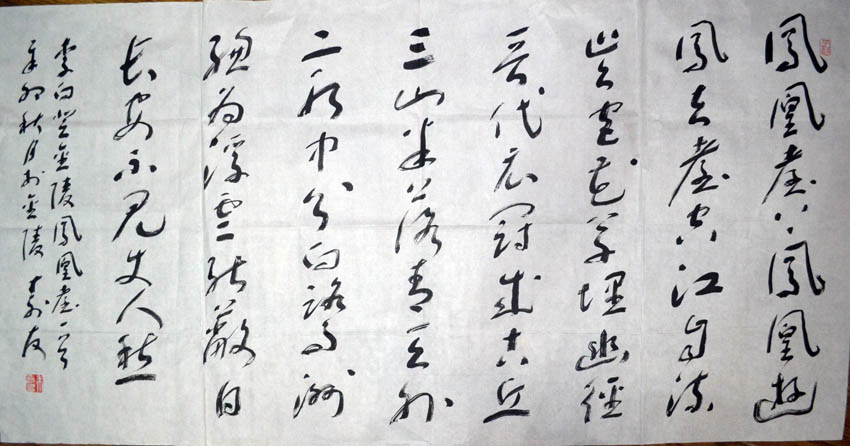 鳳凰臺上鳳凰遊
鳳去臺空江自流
吳宮花草埋幽徑
晉代衣冠成古丘
三山半落青天外
二水中分白鷺洲
總為浮雲能蔽日
長安不見使人愁
李白登金陵鳳凰臺一首
辛卯秋月於金陵 友